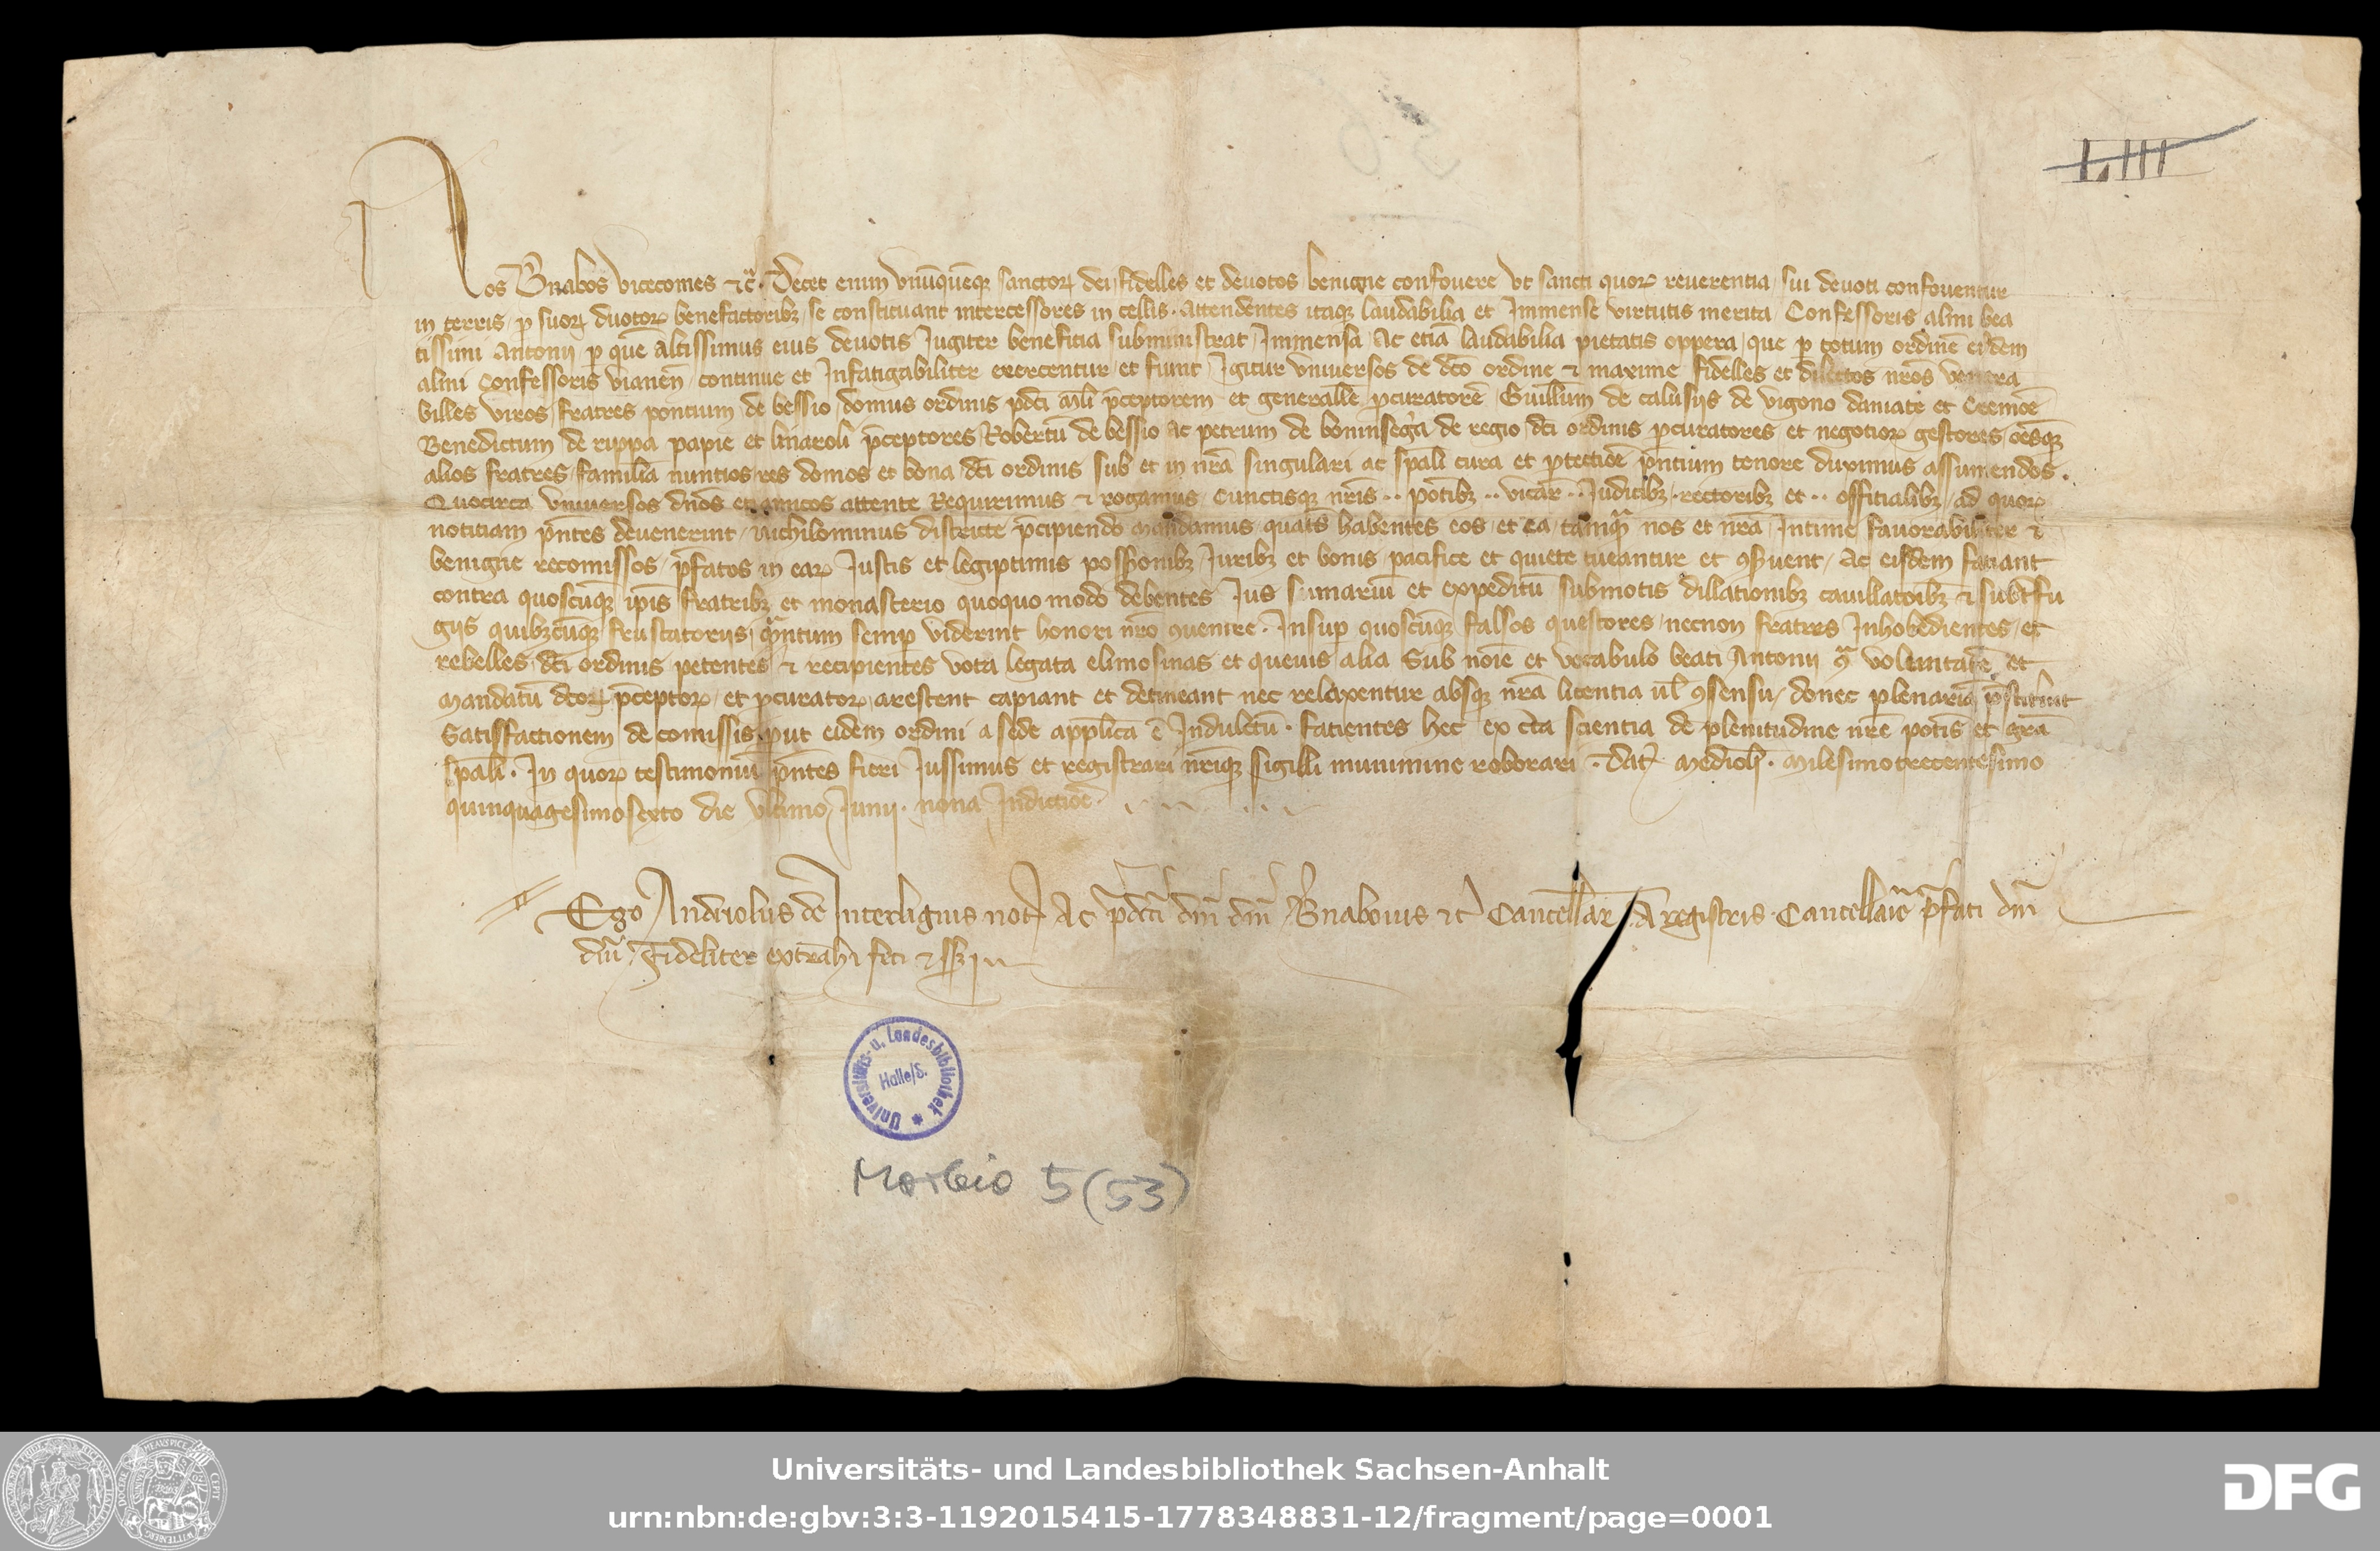 LIIII
Nos Bnabos vicecomes ⁊c̃. Decet enim vnūquēqꝫ sanctoꝝ dei fidelles et devotos benigne confovere vt sancti quoꝝ reverentia sui devoti confoventur
in terris, ꝑ suoꝝ dvotoꝝ benefactoribꝫ se constituant intercessores in cellis. Attendentes itaqꝫ laudabilia et Immense virtutis merita Confessoris almi bea
tissimi Antonij ꝑ quē altissimus eius devotis Jugiter benefitia subministrat Immensa Ac etiā laudabilia pietatis oppera que ꝑ totum ordinē eidem
almi Confessoris vianeñ continue et Infatigabiliter exercentur et fiunt Igitur vniversos de dc̄o ordine ⁊ maxime fidelles et dilectos nr̄os venera
billes viros fratres pontium de bessio domus ordinis pd̄ci mli p̄ceptorem et generallē ꝓcuratorē Guill̄um de calusijs de vigono daniate et Cremoē
Benedictum de ruppa papie et linaroli p̄ceptores Robertū de bessio ac petrum de boninseg̃a de regio dc̄i ordinis ꝓcuratores et negotioꝝ gestores oēsqꝫ
alios fratres familiā nuntios res domos et bona dc̄i ordinis sub et in nr̄a singulari ac sp̄ali cura et ꝓtectiōe p̄ntium tenore duximus assumendos.
Quocirca vniversos dn̄os et amicos attente Requirimus ⁊ rogamus Cunctisqꝫ nr̄is .. potībꝫ .. vicar̄ .. Judicibꝫ . rectoribꝫ et .. offitialibꝫ ad quoꝝ
notitiam p̄ntes devenerint nichilominus districte p̄cipiendo mandamus quatꝰ habentes eos et ea tamqꝫ nos et nr̄a Intime favorabiliter ⁊
benigne recomissos p̄fatos in eaꝝ Justis et legiptimis possionibꝫ Juribꝫ et bonis pacifice et quiete tueantur et ꝯſvent Ac eisdem fatiant
contra quoscūqꝫ ip̄is fratribꝫ et monasterio quoquo modo debentes Jus sumariū et expeditū submotis dillationibꝫ cavillatōibꝫ ⁊ subtfu
gijs quibꝫcūqꝫ frustatorijs, qꝫntum semꝑ viderint honori nr̄o ꝯvenire. Insuꝑ quoscūqꝫ falsos questores necnon fratres Inhobedientes et
rebelles dc̄i ordinis petentes ⁊ recipientes vota legata elimosinas et quevis alia sub noīe et vocabulo beati Antonij ꝯ̃ voluntatē et
mandatū dc̄oꝝ p̄ceptoꝝ et ꝓcuratoꝝ arestent capiant et detineant nec relaxentur absqꝫ nr̄a licentia ul̄ ꝯsensu donec plenariā p̄stiterint
Satisfactionem de comissis, ꝓut eidem ordini a sede app̄lica ē Indultū. fatientes hec ex c̄ta scientia de plenitudine nr̄e potīs et grā
sp̄ali. In quoꝝ testimoniū p̄ntes fieri Jussimus et registrari nr̄iqꝫ sigilli munimine roborari . Dat̄ Medioli̅ . Milesimotrecentesimo
quinquagesimosexto die vltimo Junij . nona Indictiōe .
Ego Andriolus de Interlignis not̄ Ac p̄dc̄i dn̄i dn̄i Bnabovis ⁊c̄ Cancellar̄ A registris Cancellarie p̄fati dn̄i
dn̄i, Fideliter extrahi feci ⁊ ss̄
Universitäts- u. Landesbibliothek Halle/S.
Morbio 5 (53)
Universitäts- und Landesbibliothek Sachsen-Anhalt
urn:nbn:de:gbv:3:3-1192015415-1778348831-12/fragment/page=0001
DFG